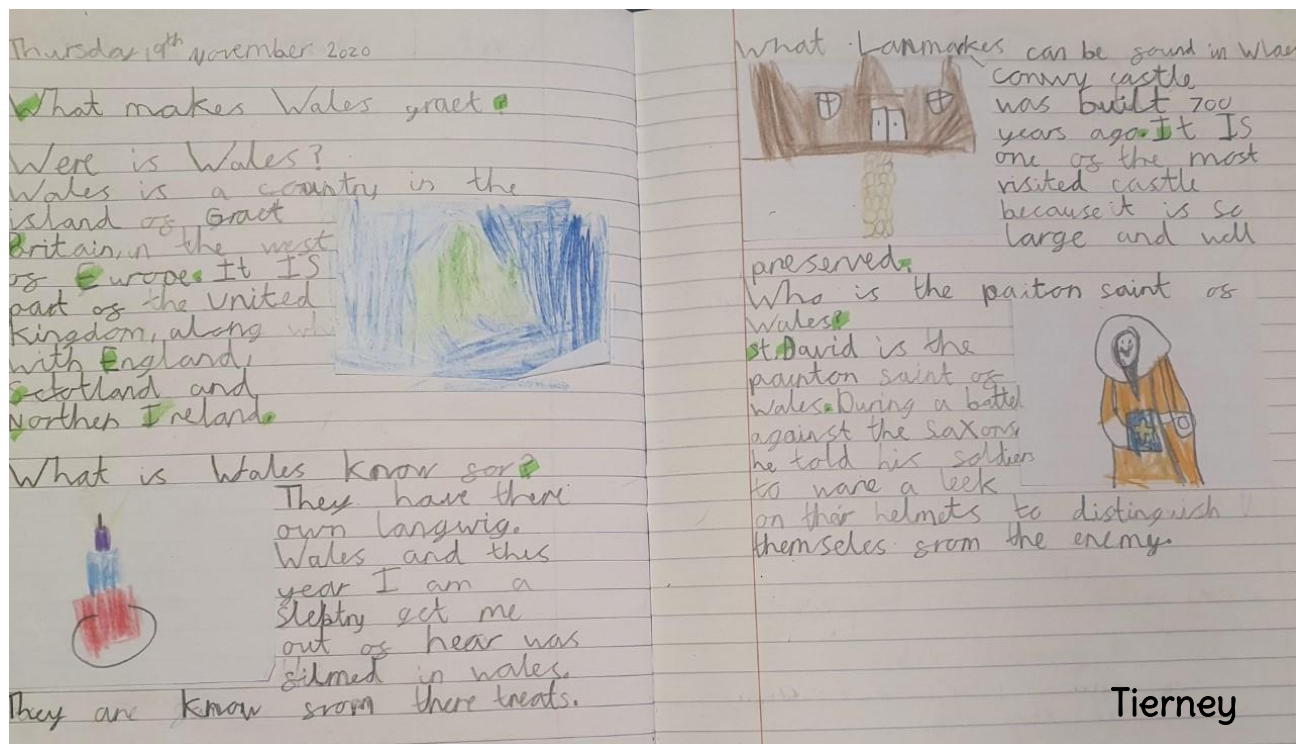 Thursday 19th November 2020
What makes Wales graet?
Were is Wales?
Wales is a country in the
island of Graet
Britain, in the west
of Europe. It IS
part of the United
Kingdom, along wh
with England,
Scotland and
Northen Ireland.
What is Wales know for?
They have there
own langwig.
Wales and this
year I am a
slebtry get me
out of hear was
filmed in wales.
They are know from there treats.
What Lanmarkes can be found in Wlaes
conwy castle
was built 700
years ago. It IS
one of the most
visited castle
because it is so
large and well
preserved.
Who is the paiton saint of
Wales?
St. David is the
paiton saint of
Wales. During a battel
against the Saxons,
he told his soldiers
to ware a leek
on their helmets to distinguish
themseles from the enemy.
Tierney